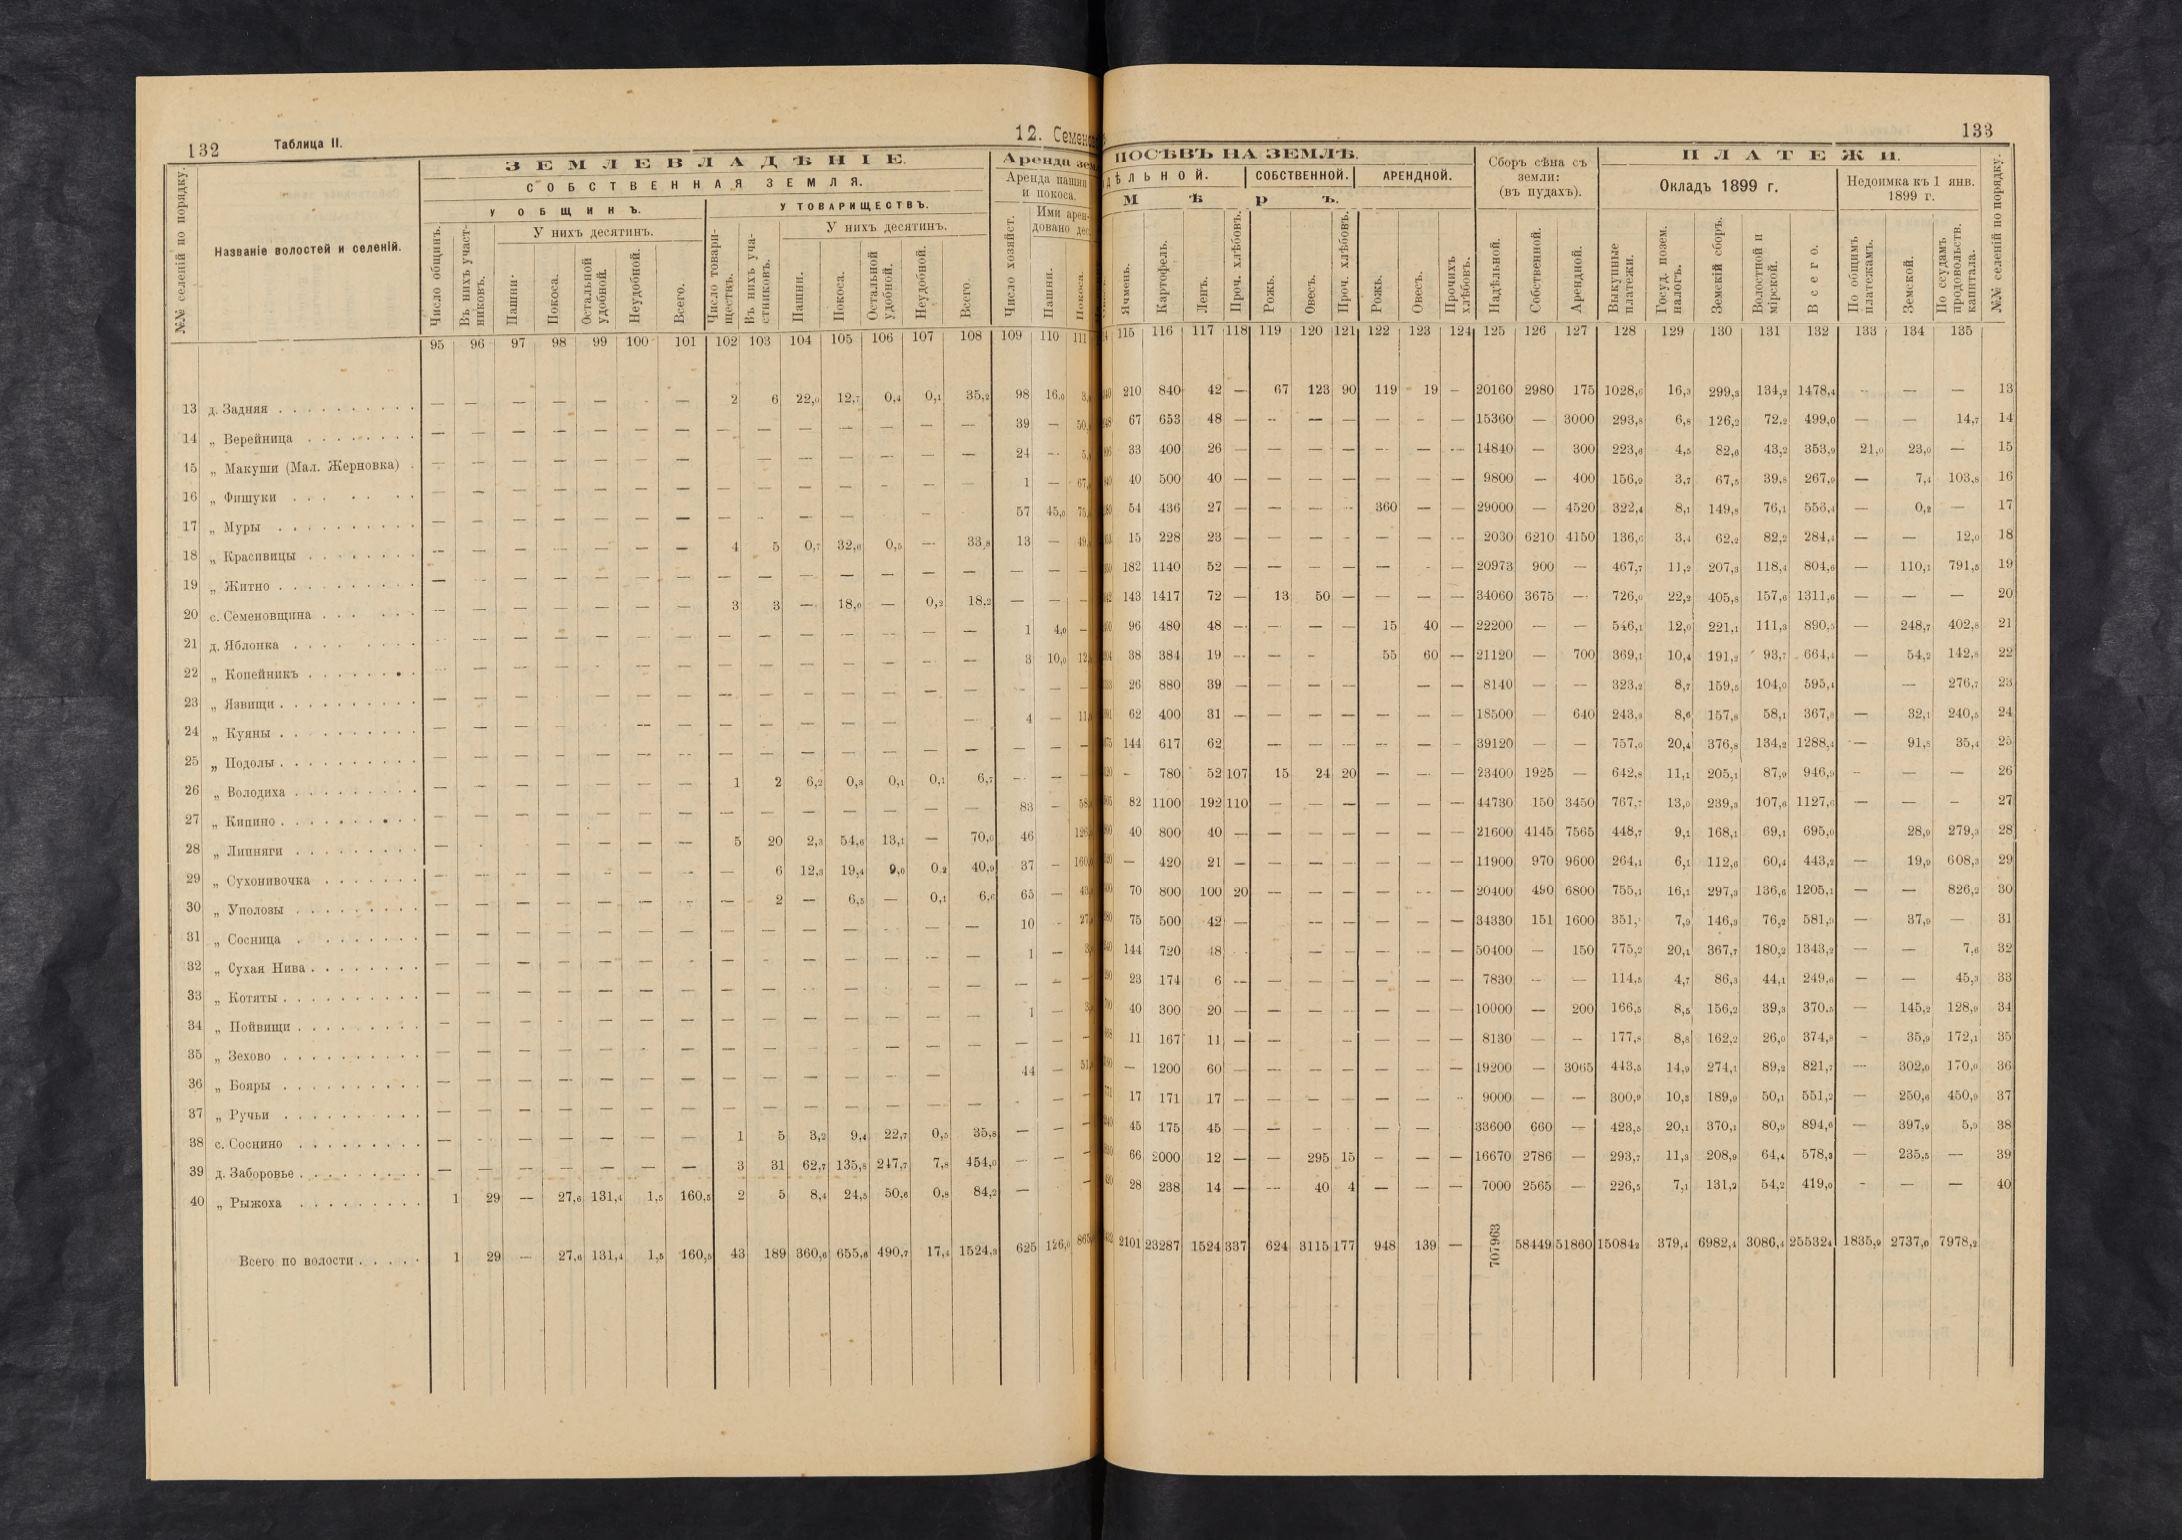 132
Таблица II.
12. Семенов
№№ селеній по порядку.
Названіе волостей и селеній.
ЗЕМЛЕВЛАДѢНІЕ.
СОБСТВЕННАЯ ЗЕМЛЯ.
У ОБЩИНЪ.
У ТОВАРИЩЕСТВЪ.
У нихъ десятинъ.
У нихъ десятинъ.
Аренда зем
Аренда пашни и покоса.
Ими арен-
довано дес.
Число общинъ.
Въ нихъ участ-
никовъ.
Пашни.
Покоса.
Остальной удобной.
Неудобной.
Всего.
Число товари-
ществъ.
Въ нихъ уча-
стниковъ.
Пашни.
Покоса.
Остальной удобной.
Неудобной.
Всего.
Число хозяйст.
Пашни.
Покоса.
95 96 97 98 99 100 101 102 103 104 105 106 107 108 109 110 111
13 д. Задняя — — — — — — — 2 6 22,0 12,7 0,4 0,1 35,2 98 16,0
14 „ Верейница — — — — — — — — — — — — — — 39 —
15 „ Макуши (Мал. Жерновка) — — — — — — — — — — — — — — 24 —
16 „ Фишуки — — — — — — — — — — — — — — 1 —
17 „ Муры — — — — — — — — — — — — — — 57 45,0
18 „ Красивицы — — — — — — — 4 5 0,7 32,6 0,5 — 33,8 13 —
19 „ Житно — — — — — — — — — — — — — — — — —
20 с. Семеновщина — — — — — — — 3 3 — 18,0 — 0,2 18,2 — — —
21 д. Яблонка — — — — — — — — — — — — — — 1 4,0 —
22 „ Копейникъ — — — — — — — — — — — — — — 3 10,0
23 „ Язвищи — — — — — — — — — — — — — — — — —
24 „ Куяны — — — — — — — — — — — — — — 4 —
25 „ Подолы — — — — — — — — — — — — — — — — —
26 „ Володиха — — — — — — — 1 2 6,2 0,3 0,1 0,1 6,7 — — —
27 „ Кипино — — — — — — — — — — — — — — 83 —
28 „ Липняги — — — — — — — 5 20 2,3 54,6 13,1 — 70,0 46
29 „ Сухонивочка — — — — — — — — 6 12,3 19,4 9,0 0,2 40,9 37 —
30 „ Уполозы — — — — — — — — 2 — 6,5 — 0,1 6,6 65 —
31 „ Сосница — — — — — — — — — — — — — — 10 —
32 „ Сухая Нива — — — — — — — — — — — — — — 1 —
33 „ Котяты — — — — — — — — — — — — — — — — —
34 „ Пойвищи — — — — — — — — — — — — — — 1 —
35 „ Зехово — — — — — — — — — — — — — — — — —
36 „ Бояры — — — — — — — — — — — — — — 44 —
37 „ Ручьи — — — — — — — — — — — — — — — — —
38 с. Соснино — — — — — — — 1 5 3,2 9,4 22,7 0,5 35,8 — — —
39 д. Заборовье — — — — — — — 3 31 62,7 135,8 247,7 7,8 454,0 — — —
40 „ Рыжоха 1 29 — 27,6 131,4 1,5 160,5 2 5 8,4 24,5 50,6 0,8 84,2 — —
Всего по волости 1 29 — 27,6 131,4 1,5 160,5 43 189 360,6 655,6 490,7 17,4 1524,3 625 126,0
133
ПОСѢВЪ НА ЗЕМЛѢ.
ДѢЛЬНОЙ.
СОБСТВЕННОЙ.
АРЕНДНОЙ.
Мѣръ.
Сборъ сѣна съ
земли:
(въ пудахъ).
ПЛАТЕЖИ.
Окладъ 1899 г.
Недоимка къ 1 янв.
1899 г.
Ячмень.
Картофель.
Ленъ.
Проч. хлѣбовъ.
Рожь.
Овесъ.
Проч. хлѣбовъ.
Рожь.
Овесъ.
Прочихъ хлѣбовъ.
Надѣльной.
Собственной.
Арендной.
Выкупные платежи.
Госуд. позем. налогъ.
Земскій сборъ.
Волостной и мірской.
Всего.
По общимъ платежамъ.
Земской.
По ссудамъ продовольств. капитала.
№№ селеній по порядку.
115 116 117 118 119 120 121 122 123 124 125 126 127 128 129 130 131 132 133 134 135
210 840 42 — 67 123 90 119 19 — 20160 2980 175 1028,6 16,3 299,3 134,2 1478,4 — — — 13
67 653 48 — — — — — — — 15360 — 3000 293,8 6,8 126,2 72,2 499,0 — — 14,7 14
33 400 26 — — — — — — — 14840 — 300 223,6 4,5 82,6 43,2 353,9 21,0 23,0 — 15
40 500 40 — — — — — — — 9800 — 400 156,9 3,7 67,5 39,8 267,9 — 7,4 103,8 16
54 436 27 — — — — 360 — — 29000 — 4520 322,4 8,1 149,8 76,1 556,4 — 0,2 — 17
15 228 23 — — — — — — — 2030 6210 4150 136,6 3,4 62,2 82,2 284,4 — — 12,0 18
182 1140 52 — — — — — — — 20973 900 — 467,7 11,2 207,3 118,4 804,6 — 110,1 791,5 19
143 1417 72 — 13 50 — — — — 34060 3675 — 726,0 22,2 405,8 157,6 1311,6 — — — 20
96 480 48 — — — — 15 40 — 22200 — — 546,1 12,0 221,1 111,3 890,5 — 248,7 402,8 21
38 384 19 — — — — 55 60 — 21120 — 700 369,1 10,4 191,2 93,7 664,4 — 54,2 142,8 22
26 880 39 — — — — — — — 8140 — — 323,2 8,7 159,5 104,0 595,4 — 276,7 23
62 400 31 — — — — — — — 18500 — 640 243,3 8,6 157,8 58,1 367,8 — 32,1 240,5 24
144 617 62 — — — — — — 39120 — — 757,0 20,4 376,8 134,2 1288,4 — 91,8 35,4 25
— 780 52 107 15 24 20 — — — 23400 1925 — 642,8 11,1 205,1 87,9 946,9 — — — 26
82 1100 192 110 — — — — — — 44730 150 3450 767,7 13,0 239,3 107,6 1127,6 — — — 27
40 800 40 — — — — — — — 21600 4145 7565 448,7 9,1 168,1 69,1 695,0 28,9 279,3 28
— 420 21 — — — — — — — 11900 970 9600 264,1 6,1 112,6 60,4 443,2 — 19,9 608,3 29
70 800 100 20 — — — — — — 20400 490 6800 755,1 16,1 297,3 136,6 1205,1 — — 826,2 30
75 500 42 — — — — — — 34330 151 1600 351, 7,9 146,3 76,2 581,9 — 37,9 — 31
144 720 48 — — — — — — 50400 — 150 775,2 20,1 367,7 180,2 1343,2 — — 7,6 32
23 174 6 — — — — — — — 7830 — — 114,5 4,7 86,3 44,1 249,6 — — 45,3 33
40 300 20 — — — — — — — 10000 — 200 166,5 8,5 156,2 39,3 370,5 — 145,2 128,9 34
11 167 11 — — — — — — 8130 — — 177,8 8,8 162,2 26,0 374,8 — 35,9 172,1 35
— 1200 60 — — — — — — — 19200 — 3065 443,5 14,9 274,1 89,2 821,7 — 302,0 170,0 36
17 171 17 — — — — — — — 9000 — — 300,9 10,3 189,9 50,1 551,2 — 250,6 450,9 37
45 175 45 — — — — — — 33600 660 — 423,5 20,1 370,1 80,9 894,6 — 397,9 5,9 38
66 2000 12 — — 295 15 — — — 16670 2786 — 293,7 11,3 208,9 64,4 578,3 — 235,5 — 39
28 238 14 — — 40 4 — — — 7000 2565 — 226,5 7,1 131,2 54,2 419,0 — — — 40
2101 23287 1524 337 624 3115 177 948 139 — 707963 58449 51860 15084,2 379,4 6982,4 3086,4 25532,4 1835,9 2737,0 7978,2